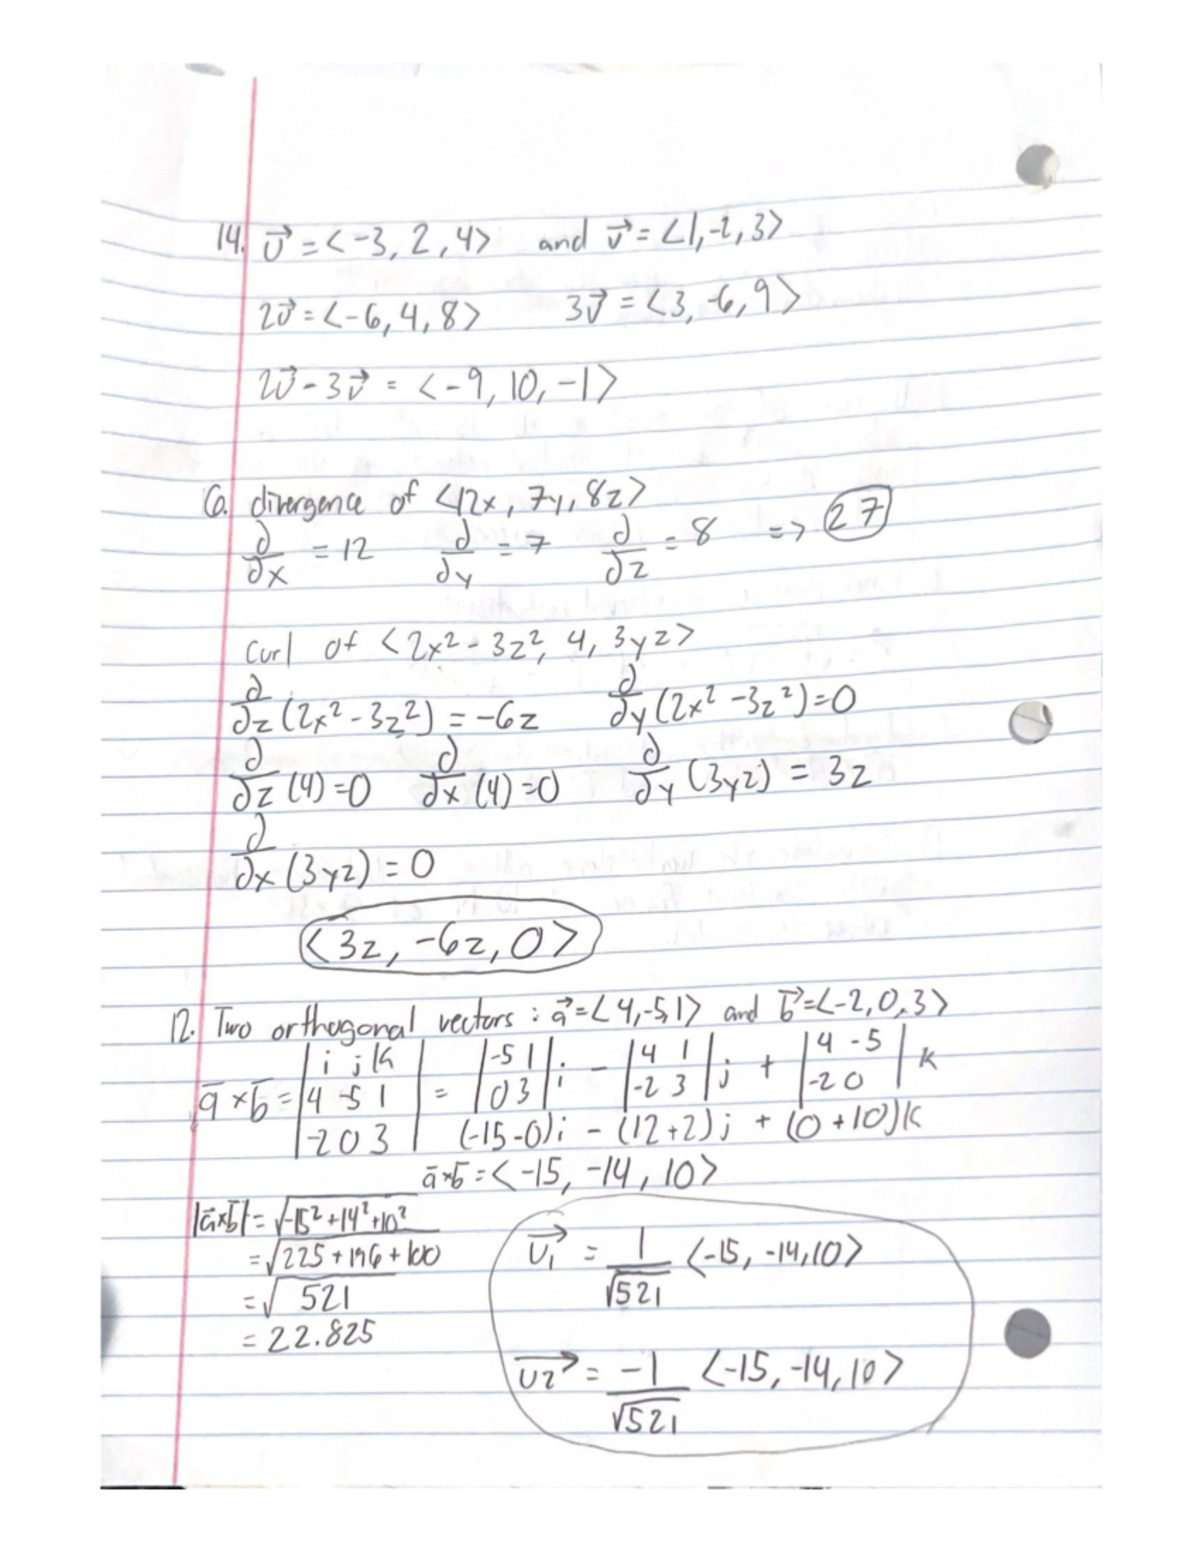 14. u⃗ = <-3, 2, 4> and v⃗ = <1, -2, 3>
2u⃗ = <-6, 4, 8> 3v⃗ = <3, -6, 9>
2u⃗ - 3v⃗ = <-9, 10, -1>
6. divergence of <12x, 7y, 8z>
∂/∂x = 12 ∂/∂y = 7 ∂/∂z = 8 => 27
Curl of <2x² - 3z², 4, 3yz>
∂/∂z (2x² - 3z²) = -6z ∂/∂y (2x² - 3z²) = 0
∂/∂z (4) = 0 ∂/∂x (4) = 0 ∂/∂y (3yz) = 3z
∂/∂x (3yz) = 0
<3z, -6z, 0>
12. Two orthogonal vectors : a⃗ = <4, -5, 1> and b⃗ = <-2, 0, 3>
a̅ × b̅ = | i j k | = | -5 1 | i - | 4 1 | j + | 4 -5 | k
| 4 -5 1 | | 0 3 | | -2 3 | | -2 0 |
| -2 0 3 | (-15-0)i - (12+2)j + (0+10)k
a̅×b̅ = <-15, -14, 10>
|a̅×b̅| = √-15² + 14² + 10²
= √225 + 196 + 100
= √521
= 22.825
u₁⃗ = 1/√521 <-15, -14, 10>
u₂⃗ = -1/√521 <-15, -14, 10>